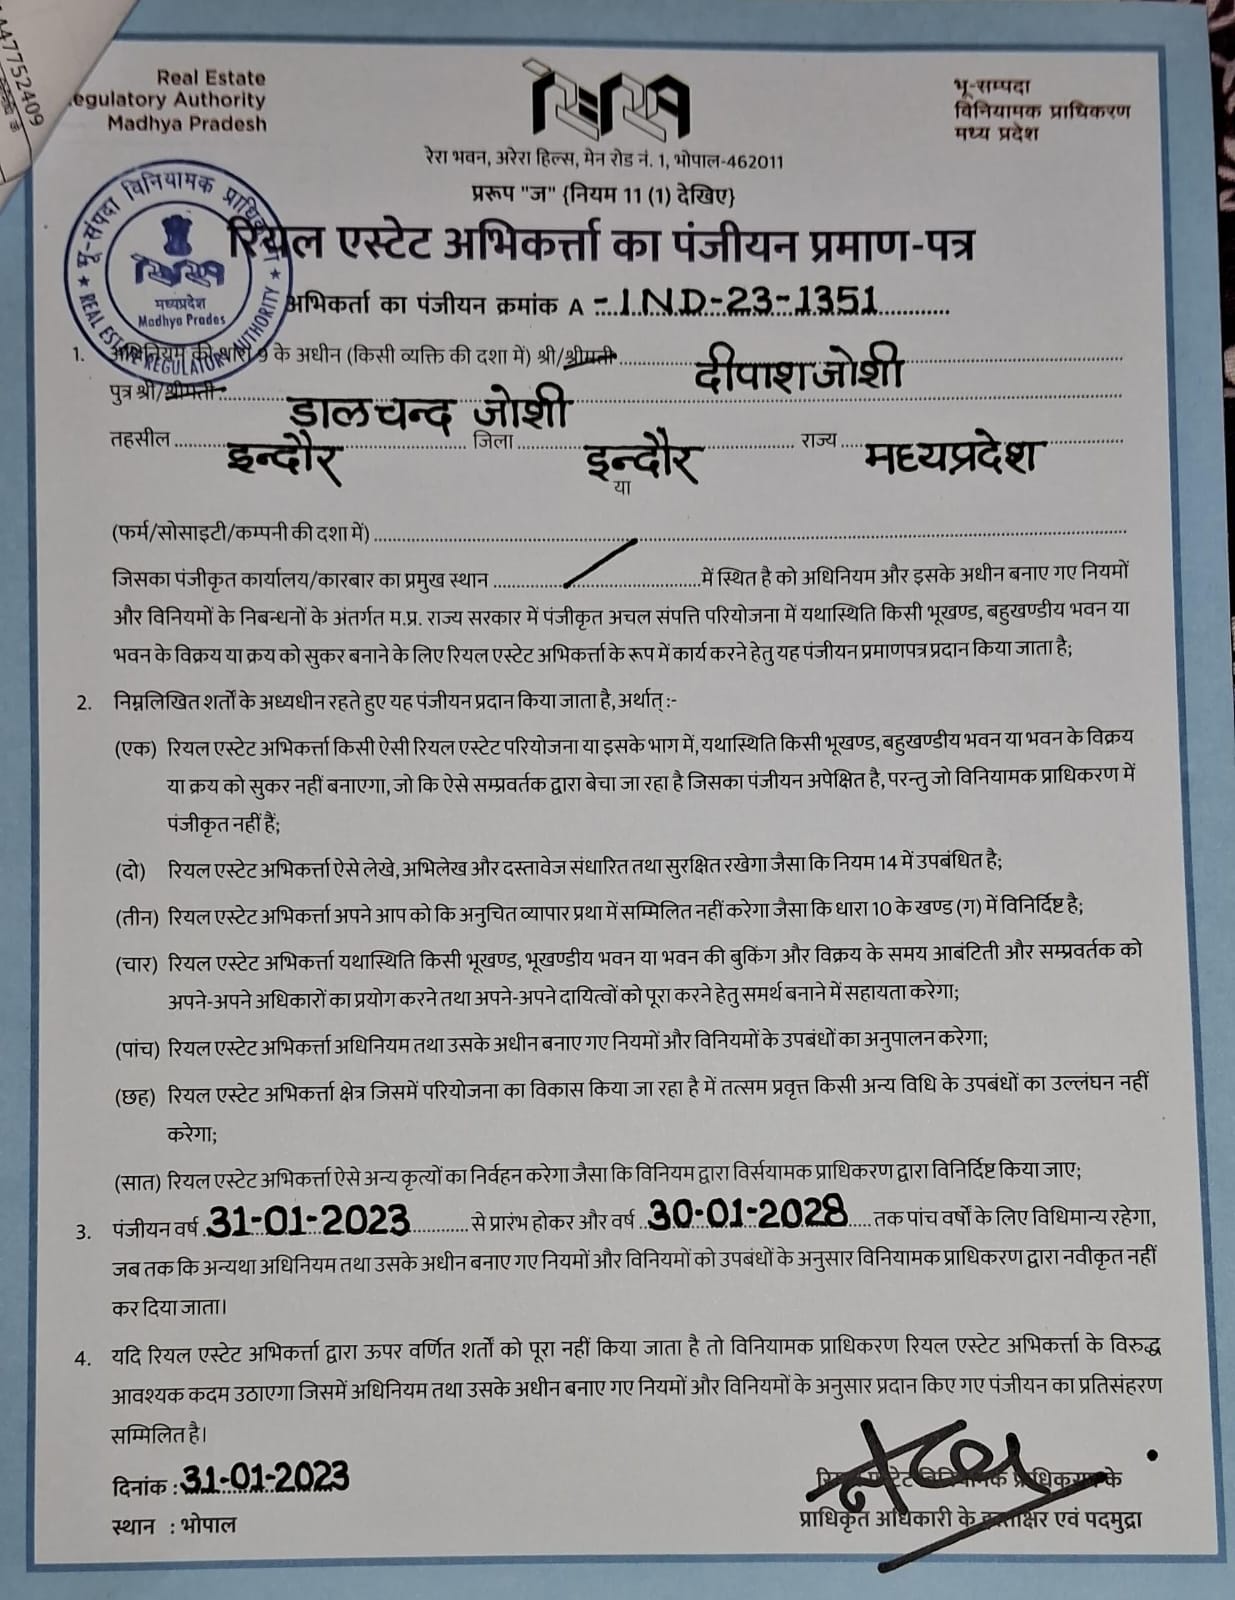 447752409
Real Estate
egulatory Authority
Madhya Pradesh
RERA
भू-सम्पदा
विनियामक प्राधिकरण
मध्य प्रदेश
रेरा भवन, अरेरा हिल्स, मेन रोड नं. 1, भोपाल-462011
प्ररूप "ज" {नियम 11 (1) देखिए}
भू-संपदा विनियामक प्राधिकरण
मध्यप्रदेश
Madhya Prades
REAL ESTATE REGULATORY AUTHORITY
रियल एस्टेट अभिकर्त्ता का पंजीयन प्रमाण-पत्र
अभिकर्ता का पंजीयन क्रमांक A -IND-23-1351
1. अधिनियम की धारा 9 के अधीन (किसी व्यक्ति की दशा में) श्री/श्रीमती दीपाश जोशी
पुत्र श्री/श्रीमती डालचन्द जोशी
तहसील इन्दौर जिला इन्दौर राज्य मध्यप्रदेश
या
(फर्म/सोसाइटी/कम्पनी की दशा में)
जिसका पंजीकृत कार्यालय/कारबार का प्रमुख स्थान में स्थित है को अधिनियम और इसके अधीन बनाए गए नियमों
और विनियमों के निबन्धनों के अंतर्गत म.प्र. राज्य सरकार में पंजीकृत अचल संपत्ति परियोजना में यथास्थिति किसी भूखण्ड, बहुखण्डीय भवन या
भवन के विक्रय या क्रय को सुकर बनाने के लिए रियल एस्टेट अभिकर्त्ता के रूप में कार्य करने हेतु यह पंजीयन प्रमाणपत्र प्रदान किया जाता है;
2. निम्नलिखित शर्तों के अध्यधीन रहते हुए यह पंजीयन प्रदान किया जाता है, अर्थात् :-
(एक) रियल एस्टेट अभिकर्त्ता किसी ऐसी रियल एस्टेट परियोजना या इसके भाग में, यथास्थिति किसी भूखण्ड, बहुखण्डीय भवन या भवन के विक्रय
या क्रय को सुकर नहीं बनाएगा, जो कि ऐसे सम्प्रवर्तक द्वारा बेचा जा रहा है जिसका पंजीयन अपेक्षित है, परन्तु जो विनियामक प्राधिकरण में
पंजीकृत नहीं हैं;
(दो) रियल एस्टेट अभिकर्त्ता ऐसे लेखे, अभिलेख और दस्तावेज संधारित तथा सुरक्षित रखेगा जैसा कि नियम 14 में उपबंधित है;
(तीन) रियल एस्टेट अभिकर्त्ता अपने आप को कि अनुचित व्यापार प्रथा में सम्मिलित नहीं करेगा जैसा कि धारा 10 के खण्ड (ग) में विनिर्दिष्ट है;
(चार) रियल एस्टेट अभिकर्त्ता यथास्थिति किसी भूखण्ड, भूखण्डीय भवन या भवन की बुकिंग और विक्रय के समय आबंटिती और सम्प्रवर्तक को
अपने-अपने अधिकारों का प्रयोग करने तथा अपने-अपने दायित्वों को पूरा करने हेतु समर्थ बनाने में सहायता करेगा;
(पांच) रियल एस्टेट अभिकर्त्ता अधिनियम तथा उसके अधीन बनाए गए नियमों और विनियमों के उपबंधों का अनुपालन करेगा;
(छह) रियल एस्टेट अभिकर्त्ता क्षेत्र जिसमें परियोजना का विकास किया जा रहा है में तत्सम प्रवृत्त किसी अन्य विधि के उपबंधों का उल्लंघन नहीं
करेगा;
(सात) रियल एस्टेट अभिकर्त्ता ऐसे अन्य कृत्यों का निर्वहन करेगा जैसा कि विनियम द्वारा विर्सयामक प्राधिकरण द्वारा विनिर्दिष्ट किया जाए;
3. पंजीयन वर्ष 31-01-2023 से प्रारंभ होकर और वर्ष 30-01-2028 तक पांच वर्षों के लिए विधिमान्य रहेगा,
जब तक कि अन्यथा अधिनियम तथा उसके अधीन बनाए गए नियमों और विनियमों को उपबंधों के अनुसार विनियामक प्राधिकरण द्वारा नवीकृत नहीं
कर दिया जाता।
4. यदि रियल एस्टेट अभिकर्त्ता द्वारा ऊपर वर्णित शर्तों को पूरा नहीं किया जाता है तो विनियामक प्राधिकरण रियल एस्टेट अभिकर्त्ता के विरुद्ध
आवश्यक कदम उठाएगा जिसमें अधिनियम तथा उसके अधीन बनाए गए नियमों और विनियमों के अनुसार प्रदान किए गए पंजीयन का प्रतिसंहरण
सम्मिलित है।
दिनांक : 31-01-2023
स्थान : भोपाल
रियल एस्टेट विनियामक प्राधिकरण के
प्राधिकृत अधिकारी के हस्ताक्षर एवं पदमुद्रा